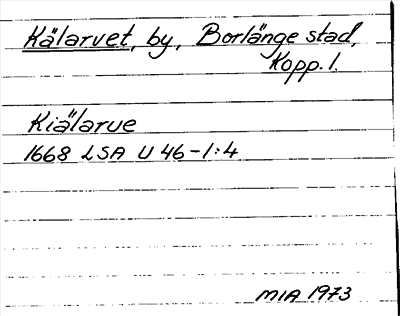 Kälarvet, by, Borlänge stad,
Kopp. l.
Kiälarue
1668 LSA U 46-1:4
MIA 1973